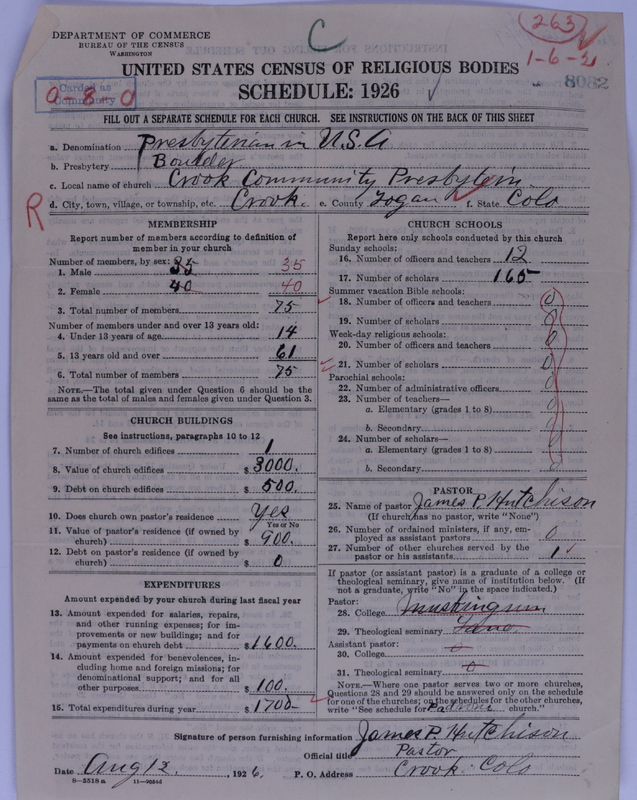 C
263
1-6-2
8082
DEPARTMENT OF COMMERCE
BUREAU OF THE CENSUS
WASHINGTON
Carded as
Community
0-8-0
UNITED STATES CENSUS OF RELIGIOUS BODIES
SCHEDULE: 1926
FILL OUT A SEPARATE SCHEDULE FOR EACH CHURCH. SEE INSTRUCTIONS ON THE BACK OF THIS SHEET
a. Denomination Presbyterian in U.S.A
b. Presbytery Boulder
c. Local name of church Crook Community Presbytein
R
d. City, town, village, or township, etc. Crook. e. County Logan f. State Colo
MEMBERSHIP
Report number of members according to definition of
member in your church
Number of members, by sex:
1. Male 35 35
2. Female 40 40
3. Total number of members 75
Number of members under and over 13 years old:
4. Under 13 years of age 14
5. 13 years old and over 61
6. Total number of members 75
NOTE.—The total given under Question 6 should be
same as the total of males and females given under Question 3.
CHURCH BUILDINGS
See instructions, paragraphs 10 to 12
7. Number of church edifices 1
8. Value of church edifices $ 3000.
9. Debt on church edifices $ 500.
10. Does church own pastor's residence Yes
Yes or No
11. Value of pastor's residence (if owned by
church) $ 900.
12. Debt on pastor's residence (if owned by
church) $ 0
EXPENDITURES
Amount expended by your church during last fiscal year
13. Amount expended for salaries, repairs,
and other running expenses; for im-
provements or new buildings; and for
payments on church debt $ 1600.
14. Amount expended for benevolences, in-
cluding home and foreign missions; for
denominational support; and for all
other purposes $ 100.
15. Total expenditures during year $ 1700-
CHURCH SCHOOLS
Report here only schools conducted by this church
Sunday schools:
16. Number of officers and teachers 12
17. Number of scholars 165
Summer vacation Bible schools:
18. Number of officers and teachers 0
19. Number of scholars 0
Week-day religious schools:
20. Number of officers and teachers 0
21. Number of scholars 0
Parochial schools:
22. Number of administrative officers 0
23. Number of teachers—
a. Elementary (grades 1 to 8) 0
b. Secondary 0
24. Number of scholars—
a. Elementary (grades 1 to 8) 0
b. Secondary 0
PASTOR
25. Name of pastor James P. Hutchison
(If church has no pastor, write "None")
26. Number of ordained ministers, if any, em-
ployed as assistant pastors 0
27. Number of other churches served by the
pastor or his assistants 1
If pastor (or assistant pastor) is a graduate of a college or
theological seminary, give name of institution below. (If
not a graduate, write "No" in the space indicated.)
Pastor:
28. College Muskingum
29. Theological seminary
Assistant pastor:
30. College 0
31. Theological seminary 0
NOTE.—Where one pastor serves two or more churches,
Questions 28 and 29 should be answered only on the schedule
for one of the churches; on the schedules for the other churches,
write "See schedule for church."
Signature of person furnishing information James P. Hutchison
Official title Pastor
Date Aug 12, 1926. P. O. Address Crook Colo